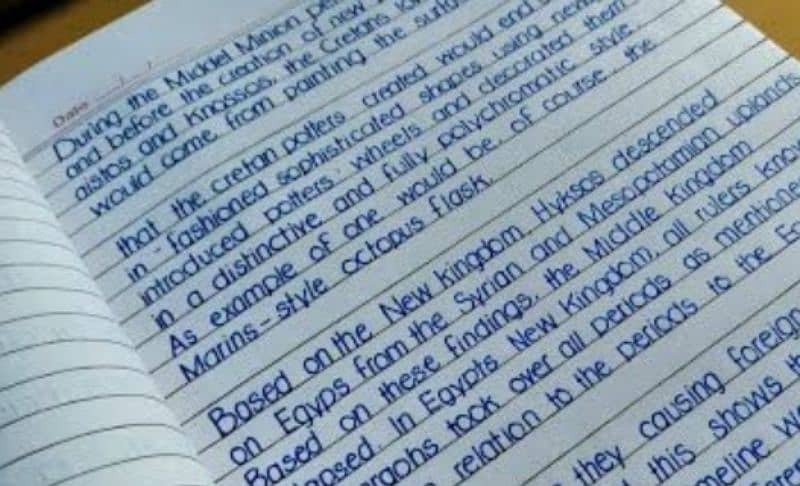 Date
During the Middel Minion
and before the creation of new
aistos and Knossos, the Cretans
would come from painting the
that the cretan potters created would end
in - fashioned sophisticated shapes using
introduced potters wheels and decorated them
in a distinctive and fully polychromatic style.
As example of one would be, of course, the
Marins - style octopus flask.
Based on the New Kingdom, Hyksos descended
on Egyps from the Syrian and Mesopotamian uplands
Based on these findings, the Middle Kingdom
In Egypts New Kingdom, all rulers
took over all periods as
relation to the periods to the
they causing foreign
this shows